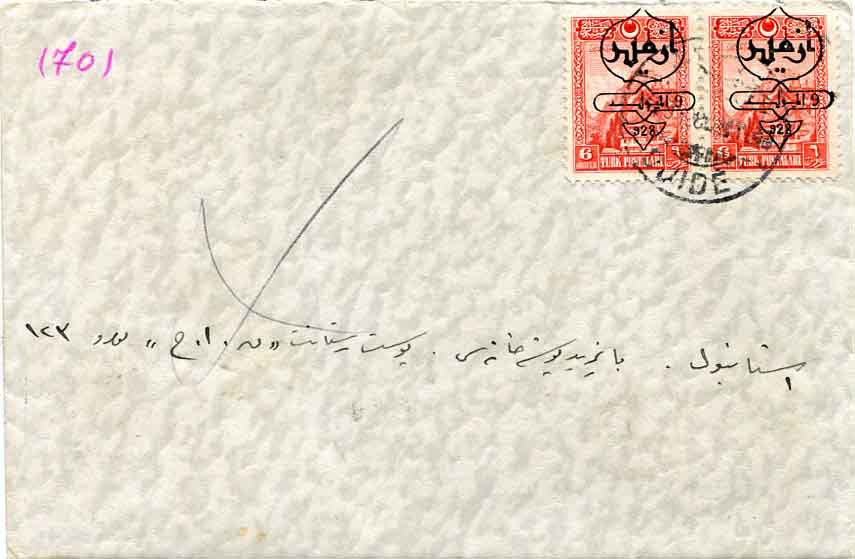 (70)
ازمير
٩ ايلول
928
6
TÜRK POSTALARI
٦
ازمير
٩ ايلول
928
6
TÜRK POSTALARI
٦
DIDE
استانبول . بايزيد پوسته‌خانه‌سى . پوست رستانت « . ا . ح » نومرو ١٢٣